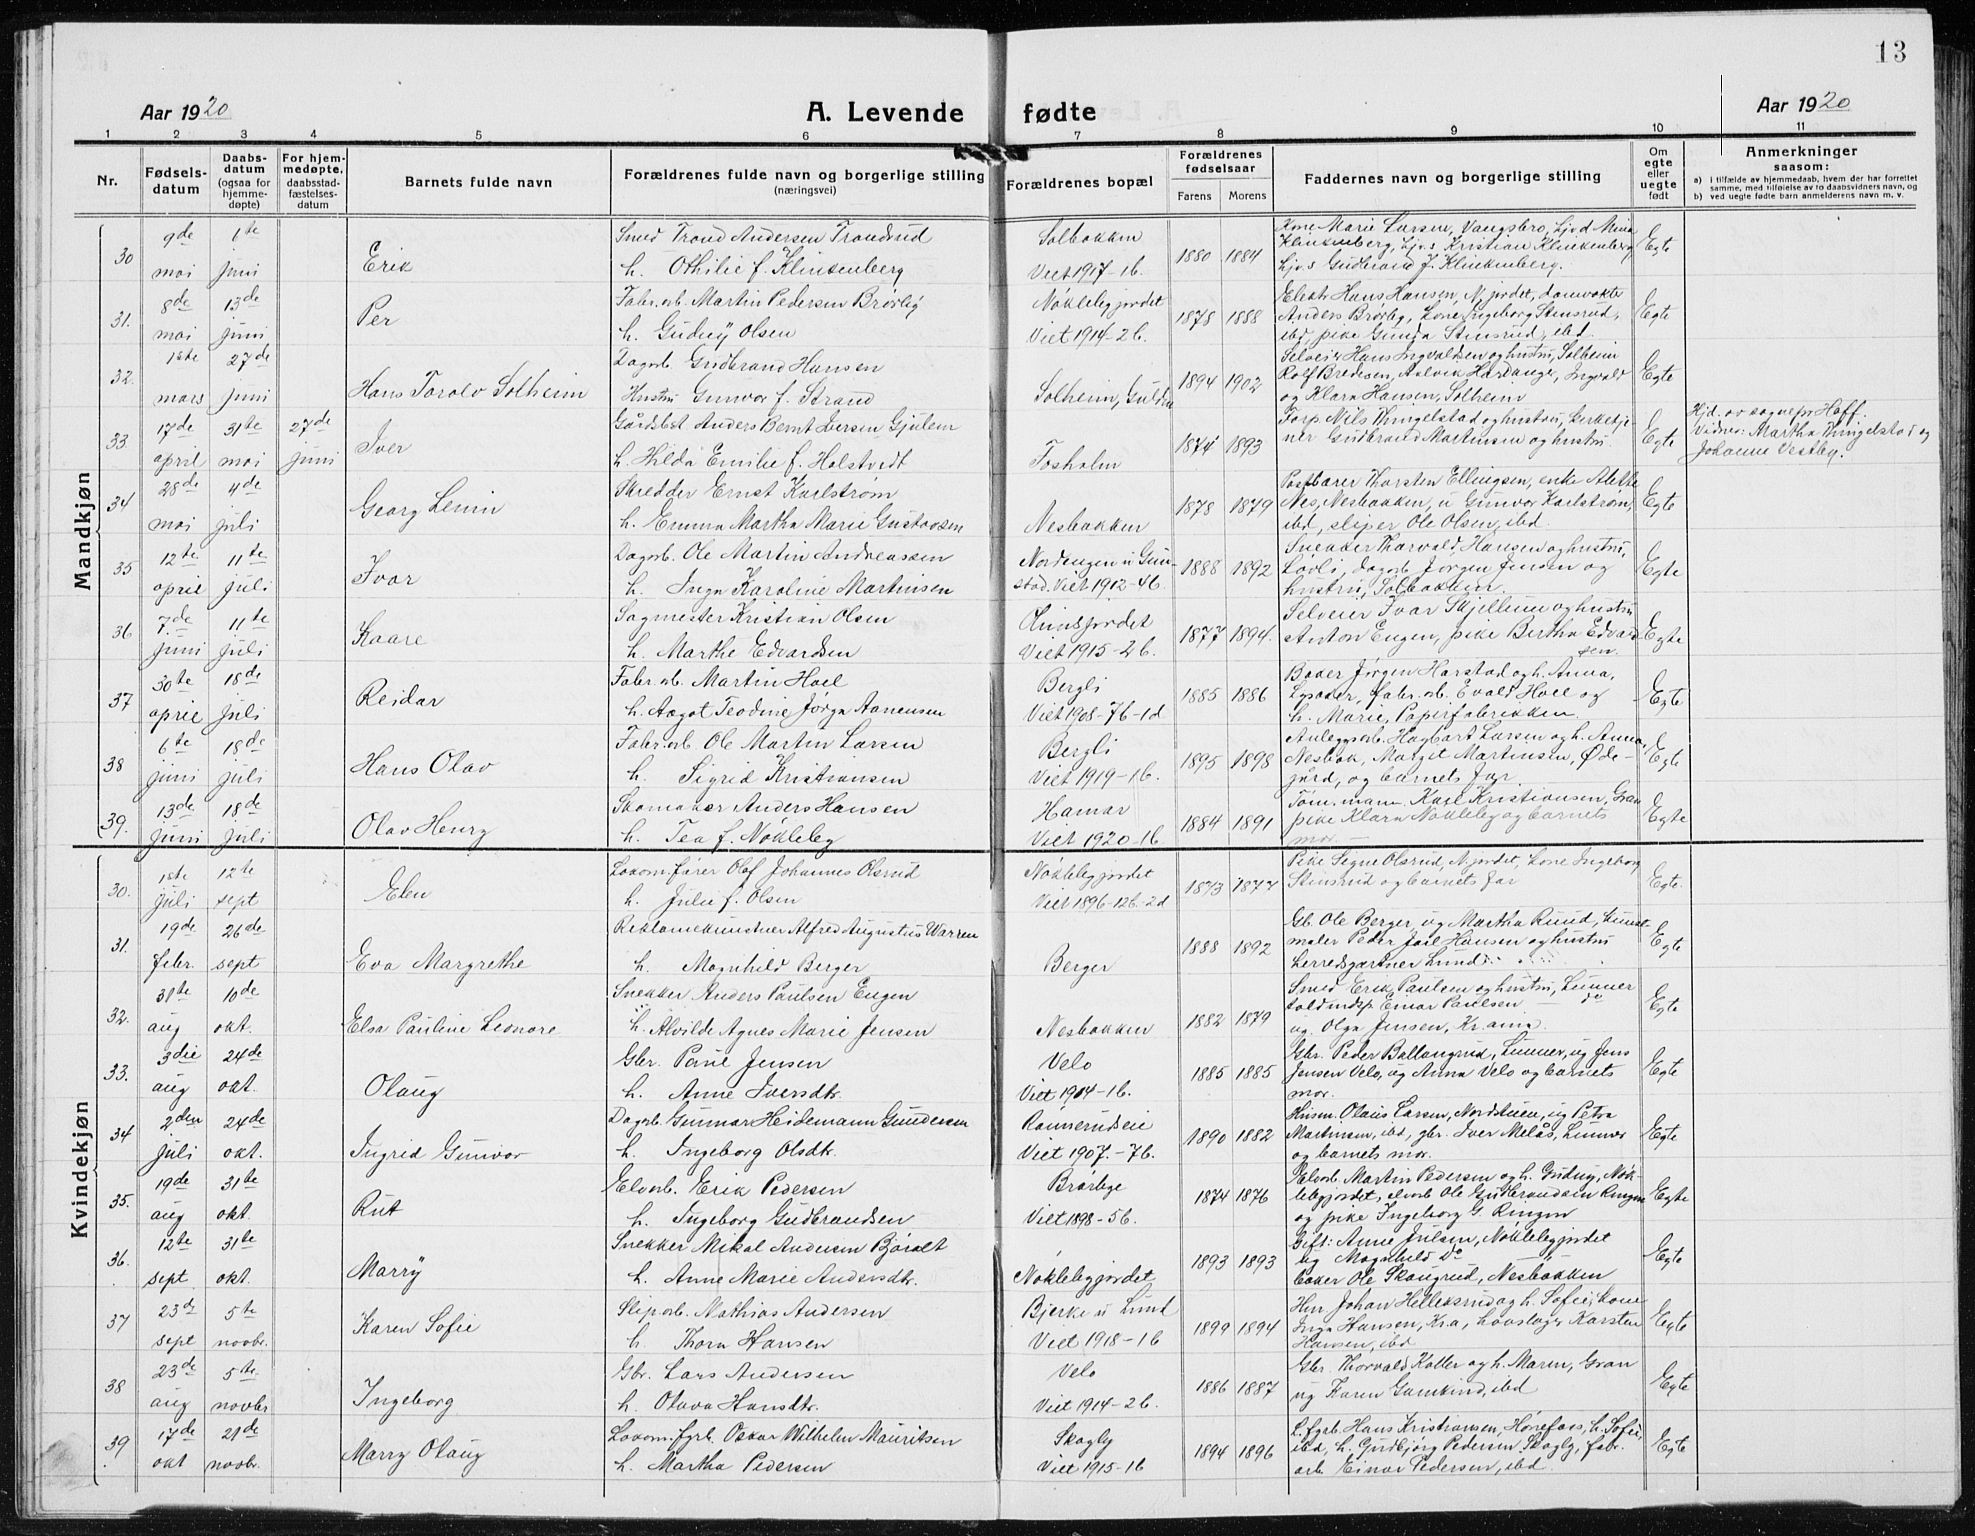 13
Aar 1920
A. Levende fødte
Aar 1920
1 2 3 4 5 6 7 8 9 10 11
Nr.
Fødsels-
datum
Daabs-
datum
(ogsaa for
hjemme-
døpte)
For hjem-
medøpte,
daabsstad-
fæstelses-
datum
Barnets fulde navn
Forældrenes fulde navn og borgerlige stilling
(næringsvei)
Forældrenes bopæl
Forældrenes
fødselsaar
Farens Morens
Faddernes navn og borgerlige stilling
Om
egte
eller
uegte
født
Anmerkninger
saasom:
a) i tilfælde av hjemmedaab, hvem der har forrettet
samme, med tilføielse av to daabsvidners navn, og
b) ved uegte fødte barn anmelderens navn m. v.
Mandkjøn
30 9de mai 1te juni Erik
Smed Trond Andersen Trondrud
h. Othilie f. Klinkenberg
Solbakken
Viet 1917-1b.
1880 1884
Kone Marie Larsen, Vangsbro, Ljv.d Mina
Klinkenberg, Ljv.s Kristian Klinkenberg
Ljv.s Gudbrand J. Klinkenberg.
Egte
31. 8de mai 13de juni Per
Fabr.arb. Martin Pedersen Brørby
h. Gudny Olsen
Nøklebyjordet
Viet 1914-2b.
1878 1888
Elektr Hans Hansen, N.jordet, damvokter
Anders Brørby, kone Ingeborg Stensrud,
ibd, pike Gunda Stensrud, ibd
Egte
32. 1ste mars 27de juni Hans Torolv Solheim
Dagarb. Gudbrand Hansen
Hustru Gunvor f. Strand
Solheim,
1894 1902
Selveier Hans Ingvaldsen og hustru, Solheim
Rolf Bredesen, Aalvik Hardanger, Ingvald
og Klara Hansen, Solheim
Egte
33 17de april 31te mai 27de juni Iver
Gårdsbest Anders Bernt Iversen Gjulem
h. Hilda Emilie f. Halstvedt
Fosholm
1874 1893
Forp. Nils Thingelstad og hustru, Kirketje
ner Gudbrand Martinsen og hustru
Egte
Hjd. av sognepr Hoff.
Vidner: Martha Thingelstad og
Johanne Vestby.
34 28de mai 4de juli Georg Lenin
Skredder Ernst Karlstrøm
h. Emma Martha Marie Gustavsen
Nesbakken
1878 1879
Postbærer Thorsten Ellingsen, enke Alette
Nes, Nesbakken, u Gunvor Karlstrøm,
ibd, sliper Ole Olsen, ibd.
Egte
35 12te april 11te juli Ivar
Dagarb. Ole Martin Andreassen
h. Inga Karoline Martinsen
Nordengen u Gun-
stad. Viet 1912-4b.
1888 1892
Snekker Thorvald Hansen og hustru,
Løvli, Dagarb Jørgen Jensen og
hustru, Solbakken.
Egte
36 7de juni 11te juli Kaare
Sagmester Kristian Olsen
h. Marthe Edvardsen
Viet 1915-2b.
1877 1894.
Selveier Ivar Skjellum og hustru
Anton Eugen, pike Bertha Edvard
sen.
Egte
37 30te april 18de juli Reidar
Fabr.arb. Martin Hoel
h. Aagot Teodine Jørga Aanensen
Bergli
Viet 1908-7b-1d
1885 1886
Baker Jørgen Harstad og h. Anna,
Lysaker, fabr.arb. Evald Hoel og
h. Marie, Papirfabrikken.
Egte
38 6te juni 18de juli Hans Olav
Fabr.arb Ole Martin Larsen
h. Sigrid Kristiansen
Bergli
Viet 1919-1b.
1895 1898
Anleggsarb. Hagbart Larsen og h. Anna,
Nesbak, Margit Martinsen, Øde-
jård, og barnets far
Egte
39. 13de juni 18de juli Olav Henry
Skomaker Anders Hansen
h. Tea f. Nøkleby
Hamar
Viet 1920-1b
1884 1891
Tømmermann Karl Kristiansen, Gran
pike Klara Nøkleby og barnets
mor —
Egte
Kvindekjøn
30. 1ste juli 12te sept Elen
Lokom.fører Olaf Johannes Olsrud
h. Julie f. Olsen
Nøklebyjordet
Viet 1896-12b-2d
1873 1877
Pike Signe Olsrud, N.jordet, kone Ingeborg
Stensrud og barnets far
Egte.
31. 19de febr. 26de sept Eva Margrethe
Reklamekunstner Alfred Augustus Warren
h. Magnhild Berger
Berger
1888 1892
Gb. Ole Berger, ug Martha Rund, kunst
maler Peder Joil Hansen og hustru
herredsgartner Lund
Egte
32. 31te aug 10de okt. Elsa Pauline Leonore
Snekker Anders Paulsen Eugen
h. Alvilde Agnes Marie Jensen
Nesbakken
1882 1879
Smed Erik Paulsen og hustru, Lunner
Einar Paulsen — do
ug. Olga Jensen, Kr.ania.
Egte
33. 3die aug 24de okt. Olaug
Gbr. Povel Jensen
h. Anne Iversdtr.
Velo
Viet 1904-1b.
1885 1885
Gbr. Peder Ballangrud, Lunner, ug Jens
Jensen Velo, ug Anna Velo og barnets
mor.
Egte
34 2den juli 24de okt. Ingrid Gunvor
Dagarb. Gunnar Heidemann Gundersen
h. Ingeborg Olsdtr.
Rønnerudseie
Viet 1907-7b.
1890 1882
Husm. Olaus Larsen, Nordstuen, ug Petra
Martinsen, ibd, gbr. Iver Melås, Lunner
og barnets mor.
Egte
35. 19de aug 31te okt. Rut
Elvarb. Erik Pedersen
h. Ingeborg Gudbrandsen
Brørbye
Viet 1898-5b.
1874 1876
Elvarb. Martin Pedersen og h. Gudny, Nøk-
lebyjordet, elvarb Ole Gudbrandsen Ringen
og pike Ingeborg G. Ringen
Egte
36. 12te sept 31te okt. Marry
Snekker Mikal Andersen Bjøralt
h. Anne Marie Andersdtr.
Nøklebyjordet
1893 1893
Gift: Anne Julsen, Nøklebyjordet
ug Magnhild Do
baker Ole Skaugrud, Nesbakken
Egte
37 23de sept 5te novbr. Karen Sofie
Sliperarb. Mathias Andersen
h. Thora Hansen
Bjerke u Lund
Viet 1918-1b
1899 1894
Hm. Johan Helleksrud og h. Sofie, kone
Inga Hansen, Kra, hovslager Karsten
Hansen, ibd
Egte
38 23de aug 5te novbr Ingeborg
Gbr. Lars Andersen
h. Olava Hansdtr.
Velo
Viet 1914-2b.
1886 1887
Gbr. Thorvald Koller og h. Maren, Gran
ug Karen Gamkind, ibd
Egte
39 17de okt 21de novbr. Marry Olaug
Lokom.fyrb. Oskar Wilhelm Mauritsen
h. Martha Pedersen
Skogly
Viet 1915-1b
1894 1896
L.fyrb. Hans Kristiansen, Hønefoss, h. Sofie,
ibd, h. Gudbjørg Pedersen Skogly, fabr.
arb Einar Pedersen, ibd.
Egte